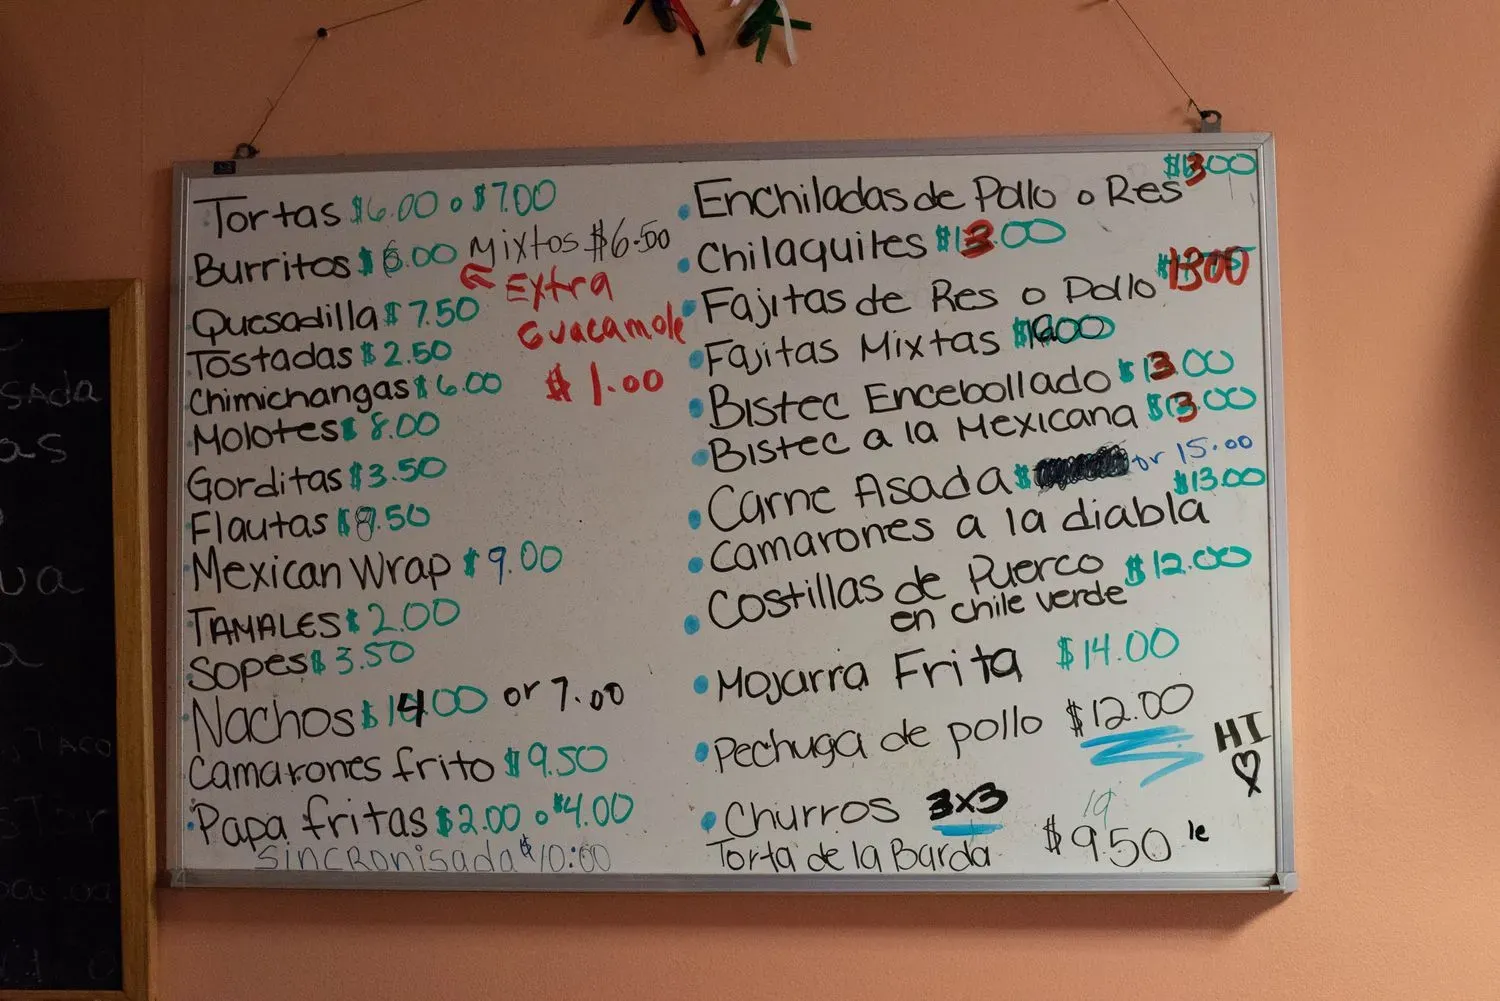 Tortas $6.00 o $7.00
Burritos $6.00 Mixtos $6.50
Extra
Guacamole
$1.00
Quesadilla $7.50
Tostadas $2.50
Chimichangas $6.00
Molotes $8.00
Gorditas $3.50
Flautas $8.50
Mexican Wrap $9.00
TAMALES $2.00
Sopes $3.50
Nachos $14.00 or 7.00
Camarones frito $9.50
Papa fritas $2.00 o $4.00
Sincronisada $10:00
Enchiladas de Pollo o Res $13.00
Chilaquiles $13.00
Fajitas de Res o Pollo $1300
Fajitas Mixtas
Bistec Encebollado $13.00
Bistec a la Mexicana $13.00
Carne Asada $ or 15.00
Camarones a la diabla $13.00
Costillas de Puerco $12.00
en chile verde
Mojarra Frita $14.00
Pechuga de pollo $12.00
HI
Churros 3x3
Torta de la Barda $9.50
sada
as